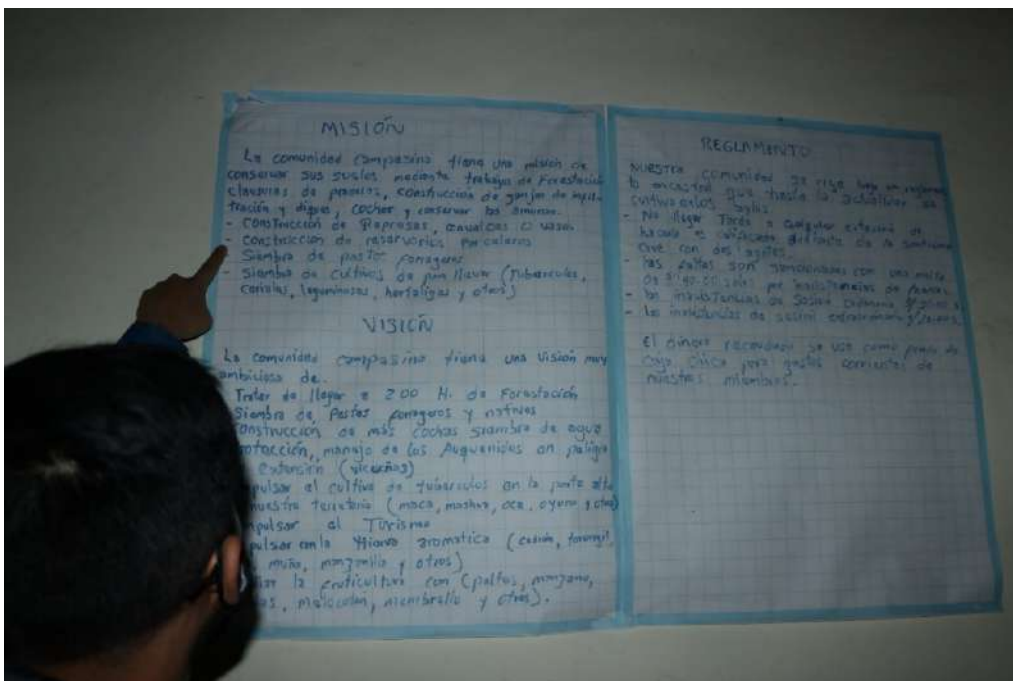 MISIÓN
La comunidad campasina tiene una misión de
conservar sus suelos mediante trabajos de Forestación
clausuras de praderas, construcción de zanjas de infil-
tración y diques, cochas y conservar los
- Construcción de Represas,
- Construcción de reservorios
- Siembra de pastos forrageros
- Siembra de cultivos de pan llevar (Tuberculos,
cerialas, leguminosas, hortaligas y otros)
VISIÓN
La comunidad campasina tiena una Visión muy
ambiciosa de.
Tratar de llegar a 200 H. de Forestación
Siembra de, Pastos forrageros y nativos
construcción de más cochas siembra de agua
manejo de los Auquenidos en paligro
extensión (vicuñas)
pulsar el cultivo de tuberculos en la parte alta
nuestro territorio (maca, mashua, oca, oyuco y otros)
pulsar al Turismo
pulsar con la Hierva aromatica (cedrón, toronjil,
muña, manzanilla y otros)
la fruticultura con (paltos, manzano,
membrallo y otros).
REGLAMENTO
NUESTRA comunidad se rige bajo un reglamen
to ancestral que hasta la actualidad se
cultiva en los
- No llegar Tarde a cualquier citación de
hacerlo es calificado
con dos azotes.
- Las faltas son sancionadas con una multa
de soles por inasistencias de faenas.
- las inasistencias de sesión
- las inasistencias de sesión extraordinaria
El dinero recaudado se usa como fondo de
caja chica para gastos corrientes de
nuestros miembros.